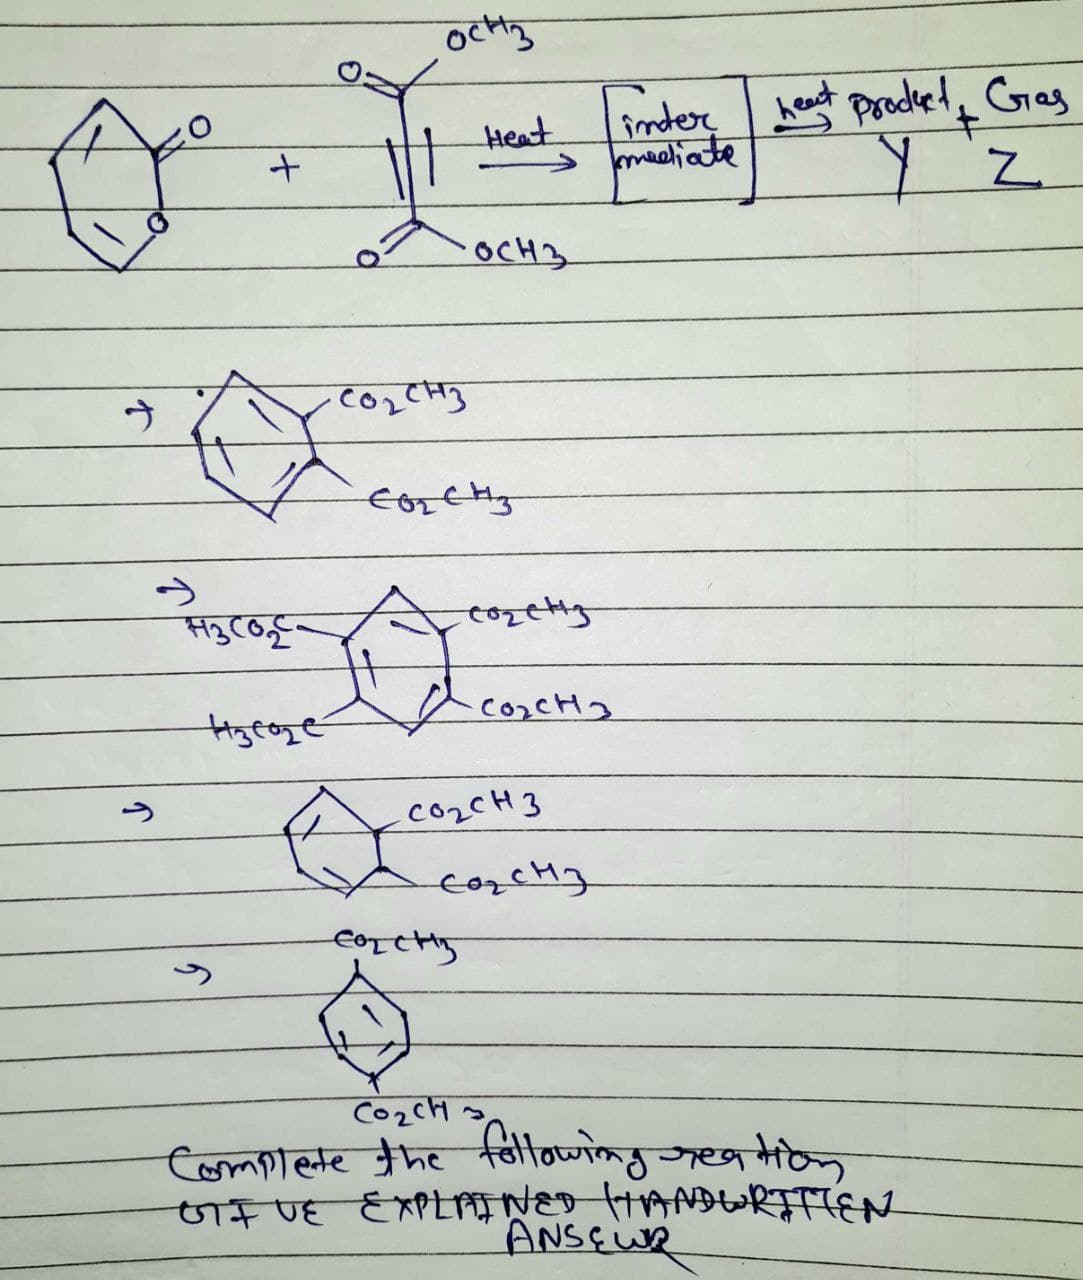 OCH3
O
O
O
+
Heat
inter
mediate
heat
Product + Gas
Y Z
O
OCH3
→ CO2CH3
CO2CH3
→
H3CO2C CO2CH3
H3CO2C CO2CH3
→ CO2CH3
CO2CH3
→ CO2CH3
CO2CH3
Complete the following reation
GIVE EXPLAINED HANDWRITTEN
ANSEWR